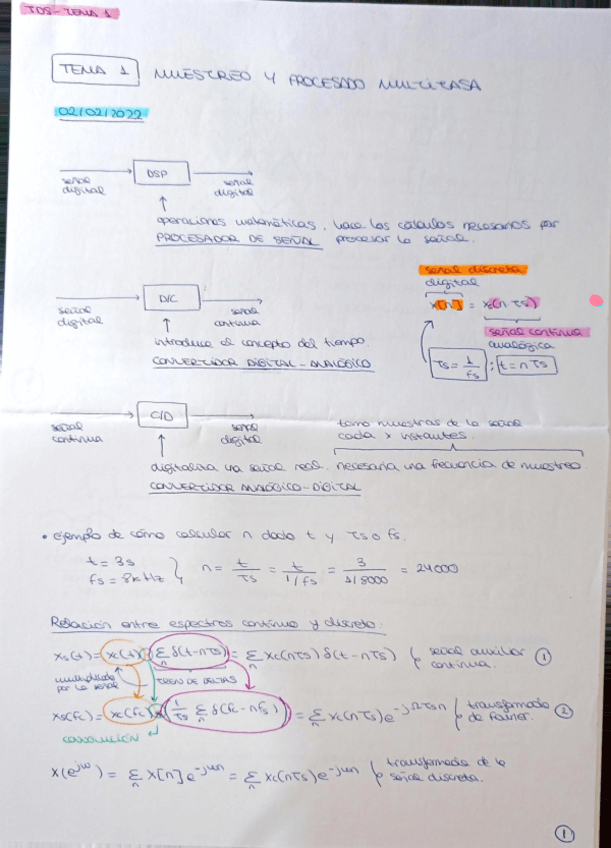 TDS-TEMA 1
TEMA 1 MUESTREO Y PROCESADO MULTITASA
02/02/2022
señal digital → DSP → señal digital
operaciones matemáticas, hace los cálculos necesarios para
PROCESADOR DE SEÑAL procesar la señal.
señal discreta
digital
señal digital → D/C → señal continua
x[n] = xc(n Ts)
señal continua
analógica
introduce el concepto del tiempo.
CONVERTIDOR DIGITAL-ANALÓGICO
Ts = 1/fs ; t = n Ts
señal continua → C/D → señal digital
tomo muestras de la señal
cada x instantes.
digitaliza una señal real. necesaria una frecuencia de muestreo.
CONVERTIDOR ANALÓGICO-DIGITAL
• ejemplo de cómo calcular n dado t y Ts o fs.
t = 3s
fs = 8kHz } n = t/Ts = t/(1/fs) = 3/(1/8000) = 24000
Relación entre espectros continuo y discreto:
xs(t) = xc(t) · (Σn δ(t-nTs)) = Σn xc(nTs) δ(t-nTs) señal auxiliar continua. ①
multiplicada por la señal
TREN DE DELTAS
xs(fc) = xc(fc) * (1/Ts Σn δ(fc-nfs)) = Σn xc(nTs) e^-jΩTsn transformada de Fourier. ②
CONVOLUCIÓN
x(e^jω) = Σn x[n] e^-jωn = Σn xc(nTs) e^-jωn transformada de la señal discreta.
①